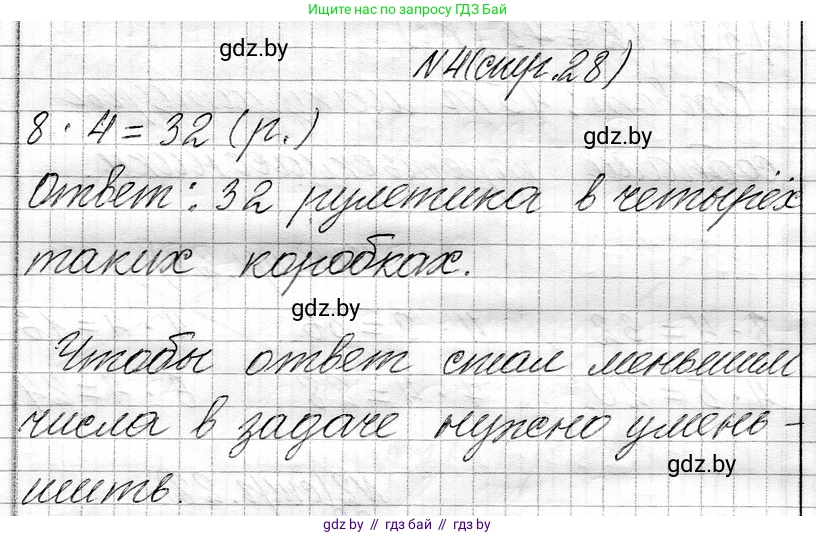 Ищите нас по запросу ГДЗ Бай
gdz.by
№4(стр.28)
8 · 4 = 32 (р.)
gdz.by
Ответ: 32 рулетика в четырёх
таких коробках.
gdz.by
Чтобы ответ стал меньшим
числа в задаче нужно умень-
gdz.by
шить.
gdz.by // гдз бай // гдз by